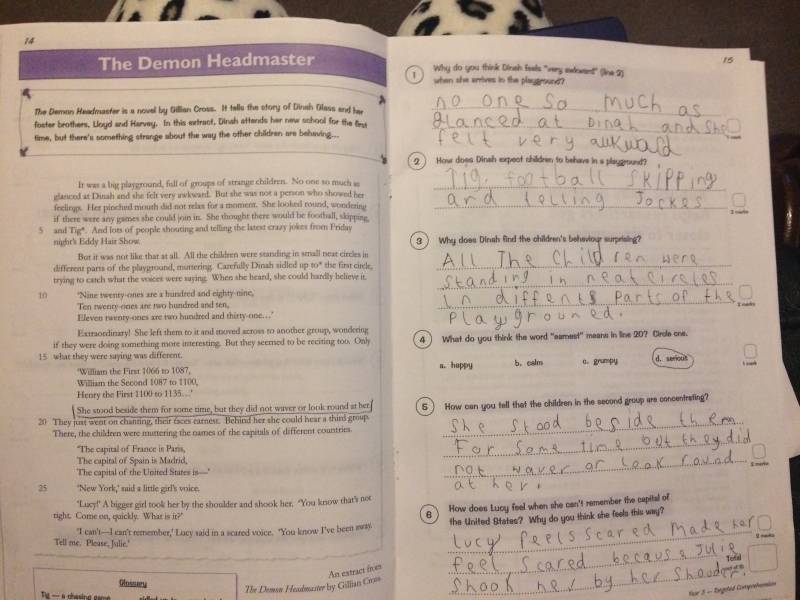 14
The Demon Headmaster
The Demon Headmaster is a novel by Gillian Cross. It tells the story of Dinah Glass and her
foster brothers, Lloyd and Harvey. In this extract, Dinah attends her new school for the first
time, but there's something strange about the way the other children are behaving...
It was a big playground, full of groups of strange children. No one so much as
glanced at Dinah and she felt very awkward. But she was not a person who showed her
feelings. Her pinched mouth did not relax for a moment. She looked round, wondering
if there were any games she could join in. She thought there would be football, skipping,
5 and Tig*. And lots of people shouting and telling the latest crazy jokes from Friday
night's Eddy Hair Show.
But it was not like that at all. All the children were standing in small neat circles in
different parts of the playground, muttering. Carefully Dinah sidled up to* the first circle,
trying to catch what the voices were saying. When she heard, she could hardly believe it.
10 'Nine twenty-ones are a hundred and eighty-nine,
Ten twenty-ones are two hundred and ten,
Eleven twenty-ones are two hundred and thirty-one...'
Extraordinary! She left them to it and moved across to another group, wondering
if they were doing something more interesting. But they seemed to be reciting too. Only
15 what they were saying was different.
'William the First 1066 to 1087,
William the Second 1087 to 1100,
Henry the First 1100 to 1135...'
She stood beside them for some time, but they did not waver or look round at her.
20 They just went on chanting, their faces earnest. Behind her she could hear a third group.
There, the children were muttering the names of the capitals of different countries.
'The capital of France is Paris,
The capital of Spain is Madrid,
The capital of the United States is—'
25 'New York,' said a little girl's voice.
'Lucy!' A bigger girl took her by the shoulder and shook her. 'You know that's not
right. Come on, quickly. What is it?'
'I can't—I can't remember,' Lucy said in a scared voice. 'You know I've been away.
Tell me. Please, Julie.'
An extract from
The Demon Headmaster by Gillian Cross
Glossary
Tig — a chasing game sidled up to
15
1 Why do you think Dinah feels "very awkward" (line 2)
when she arrives in the playground?
no one so much as
glanced at Dinah and she
felt very aukward
1 mark
2 How does Dinah expect children to behave in a playground?
Tig, football skipping
and telling Jockes
2 marks
3 Why does Dinah find the children's behaviour surprising?
All The Children were
standing in neat circles
in diffents parts of the
playgrouned.
2 marks
4 What do you think the word "earnest" means in line 20? Circle one.
a. happy b. calm c. grumpy d. serious
1 mark
5 How can you tell that the children in the second group are concentrating?
She stood beside them
For some time but they did
not waver or look round
at her.
2 marks
6 How does Lucy feel when she can't remember the capital of
the United States? Why do you think she feels this way?
Lucy feels scared made her
feel scared because Julie
shook her by her shouder.
2 marks
Total
Year 3 — Targeted Comprehension